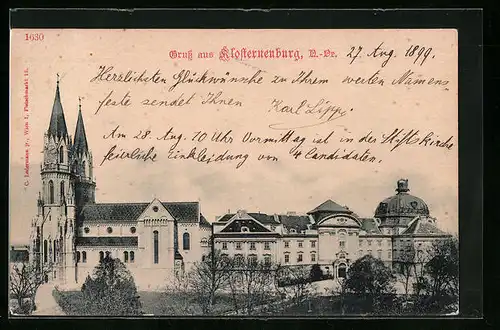 1630
Gruß aus Klosterneuburg, N.-Oe.
27. Aug. 1899.
Herzlichsten Glückwünsche zu Ihrem werten Namens
feste sendet Ihnen Karl Lippe
Am 28. Aug. 10 Uhr Vormittag ist in der Stiftskirche
feierliche Einkleidung von 4 Candidaten.
C. Ledermann, jr., Wien I., Fleischmarkt 15.